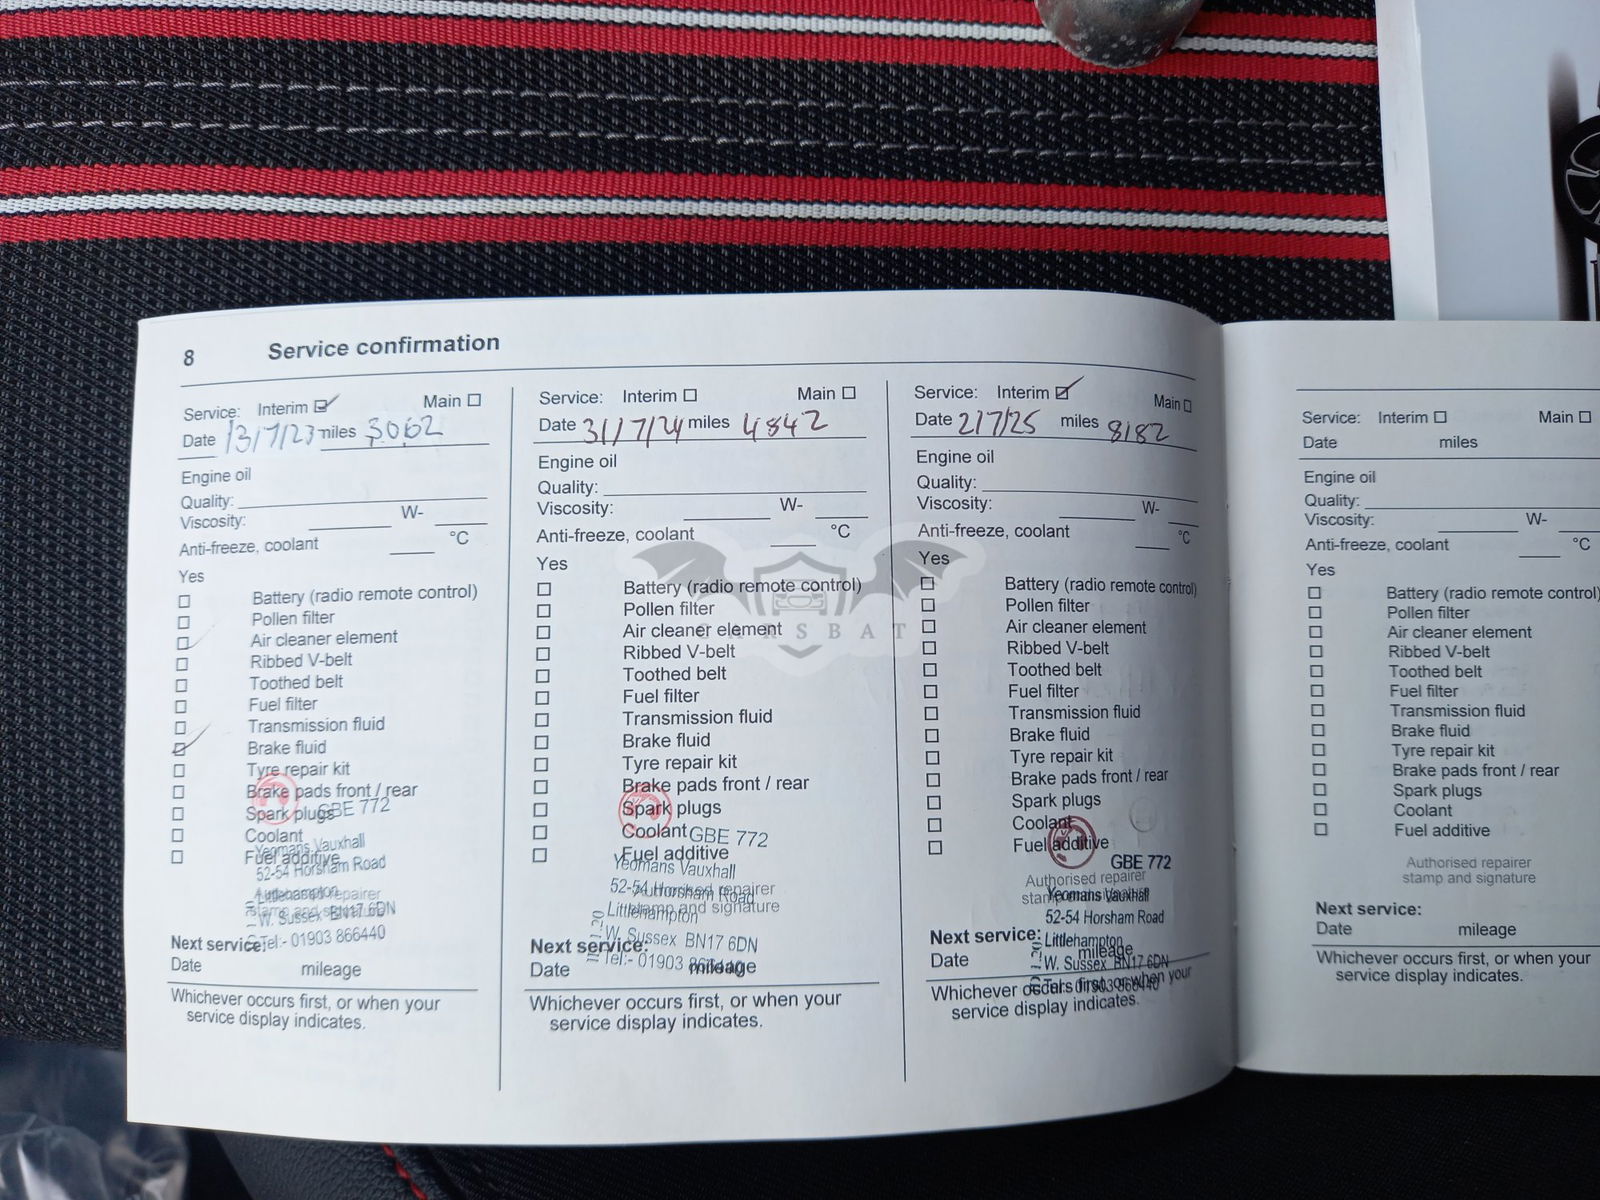 8 Service confirmation
Service: Interim ☑ Main ☐
Date 13/7/23 miles 3062
Engine oil
Quality:
Viscosity: W-
Anti-freeze, coolant °C
Yes
☐ Battery (radio remote control)
☐ Pollen filter
☐ Air cleaner element
☐ Ribbed V-belt
☐ Toothed belt
☐ Fuel filter
☐ Transmission fluid
☑ Brake fluid
☐ Tyre repair kit
☐ Brake pads front / rear
☐ Spark plugs
GBE 772
☐ Coolant
Yeomans Vauxhall
☐ Fuel additive
52-54 Horsham Road
Littlehampton
Authorised repairer
stamp and signature
W. Sussex BN17 6DN
Tel:- 01903 866440
Next service:
Date mileage
Whichever occurs first, or when your
service display indicates.
Service: Interim ☐ Main ☐
Date 31/7/24 miles 4842
Engine oil
Quality:
Viscosity: W-
Anti-freeze, coolant °C
Yes
☐ Battery (radio remote control)
☐ Pollen filter
☐ Air cleaner element
☐ Ribbed V-belt
☐ Toothed belt
☐ Fuel filter
☐ Transmission fluid
☐ Brake fluid
☐ Tyre repair kit
☐ Brake pads front / rear
☐ Spark plugs
☐ Coolant
GBE 772
☐ Fuel additive
Yeomans Vauxhall
52-54 Horsham Road
Authorised repairer
stamp and signature
Littlehampton
W. Sussex BN17 6DN
Tel:- 01903 866440
Next service:
Date mileage
Whichever occurs first, or when your
service display indicates.
Service: Interim ☑ Main ☐
Date 2/7/25 miles 8182
Engine oil
Quality:
Viscosity: W-
Anti-freeze, coolant °C
Yes
☐ Battery (radio remote control)
☐ Pollen filter
☐ Air cleaner element
☐ Ribbed V-belt
☐ Toothed belt
☐ Fuel filter
☐ Transmission fluid
☐ Brake fluid
☐ Tyre repair kit
☐ Brake pads front / rear
☐ Spark plugs
☐ Coolant
☐ Fuel additive
GBE 772
Authorised repairer
stamp and signature
Yeomans Vauxhall
52-54 Horsham Road
Littlehampton
W. Sussex BN17 6DN
Tel:- 01903 866440
Next service:
Date mileage
Whichever occurs first, or when your
service display indicates.
Service: Interim ☐ Main ☐
Date miles
Engine oil
Quality:
Viscosity: W-
Anti-freeze, coolant °C
Yes
☐ Battery (radio remote control)
☐ Pollen filter
☐ Air cleaner element
☐ Ribbed V-belt
☐ Toothed belt
☐ Fuel filter
☐ Transmission fluid
☐ Brake fluid
☐ Tyre repair kit
☐ Brake pads front / rear
☐ Spark plugs
☐ Coolant
☐ Fuel additive
Authorised repairer
stamp and signature
Next service:
Date mileage
Whichever occurs first, or when your
service display indicates.
CARSBAT